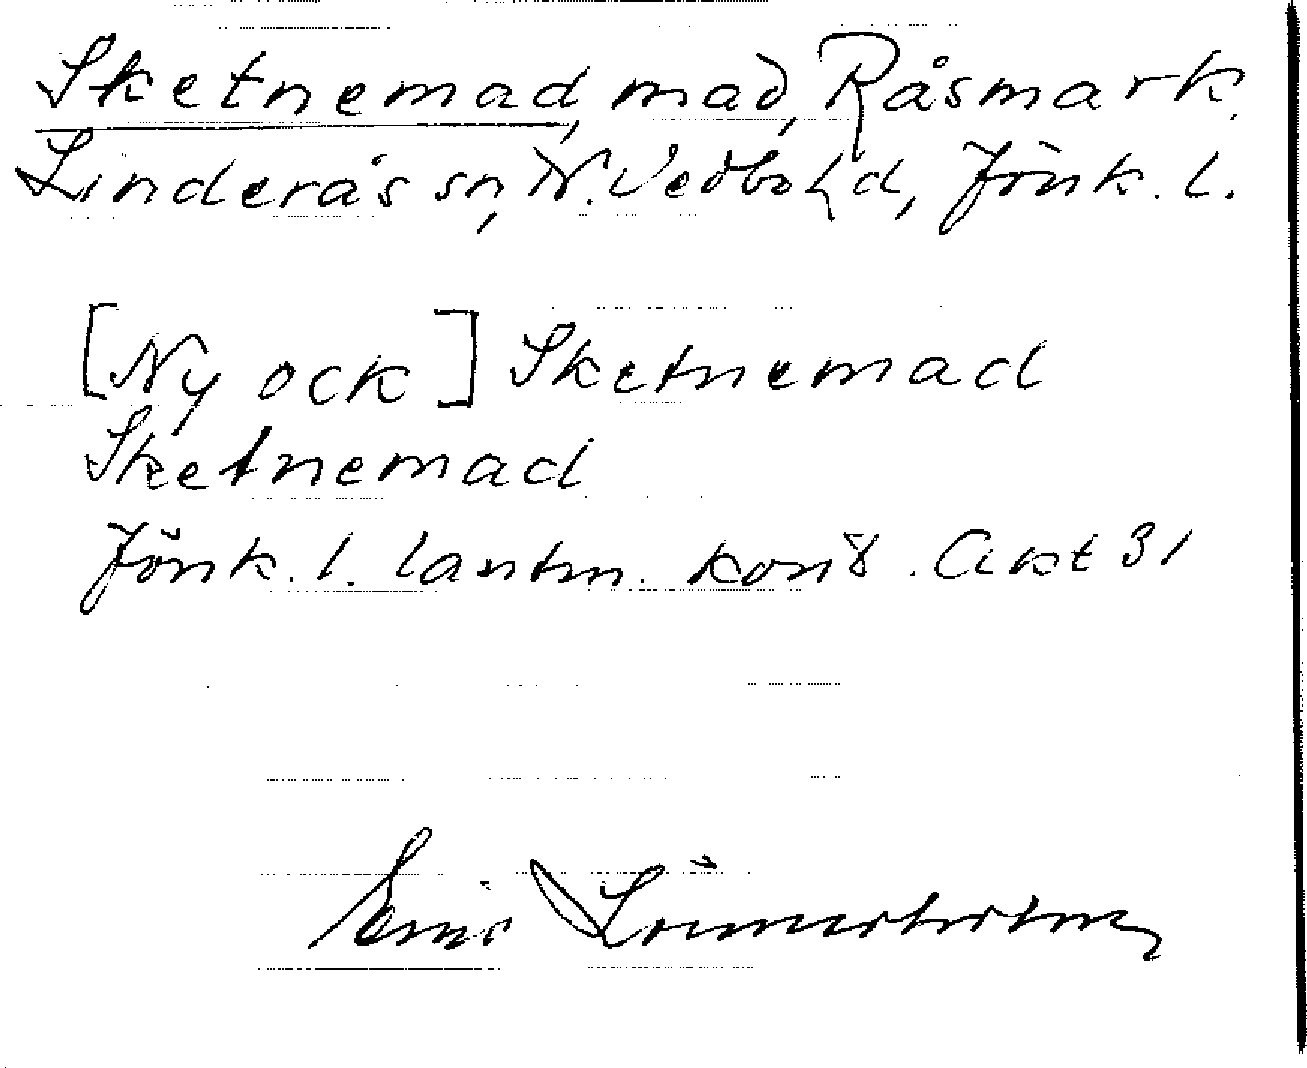 Sketnemad, mad, Råsmark,
Linderås sn, N. Vedbo hd, Jönk. l.
[Ny ock] Sketnemad
Sketnemad
Jönk. l. lantm. kont. Akt 31